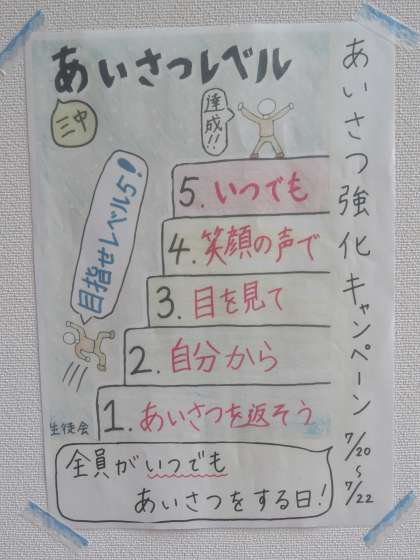 あいさつレベル
三中
達成!!
あいさつ強化キャンペーン 7/20〜7/22
5. いつでも
4. 笑顔の声で
3. 目を見て
2. 自分から
1. あいさつを返そう
目指せレベル5!
生徒会
全員がいつでも
あいさつをする日!